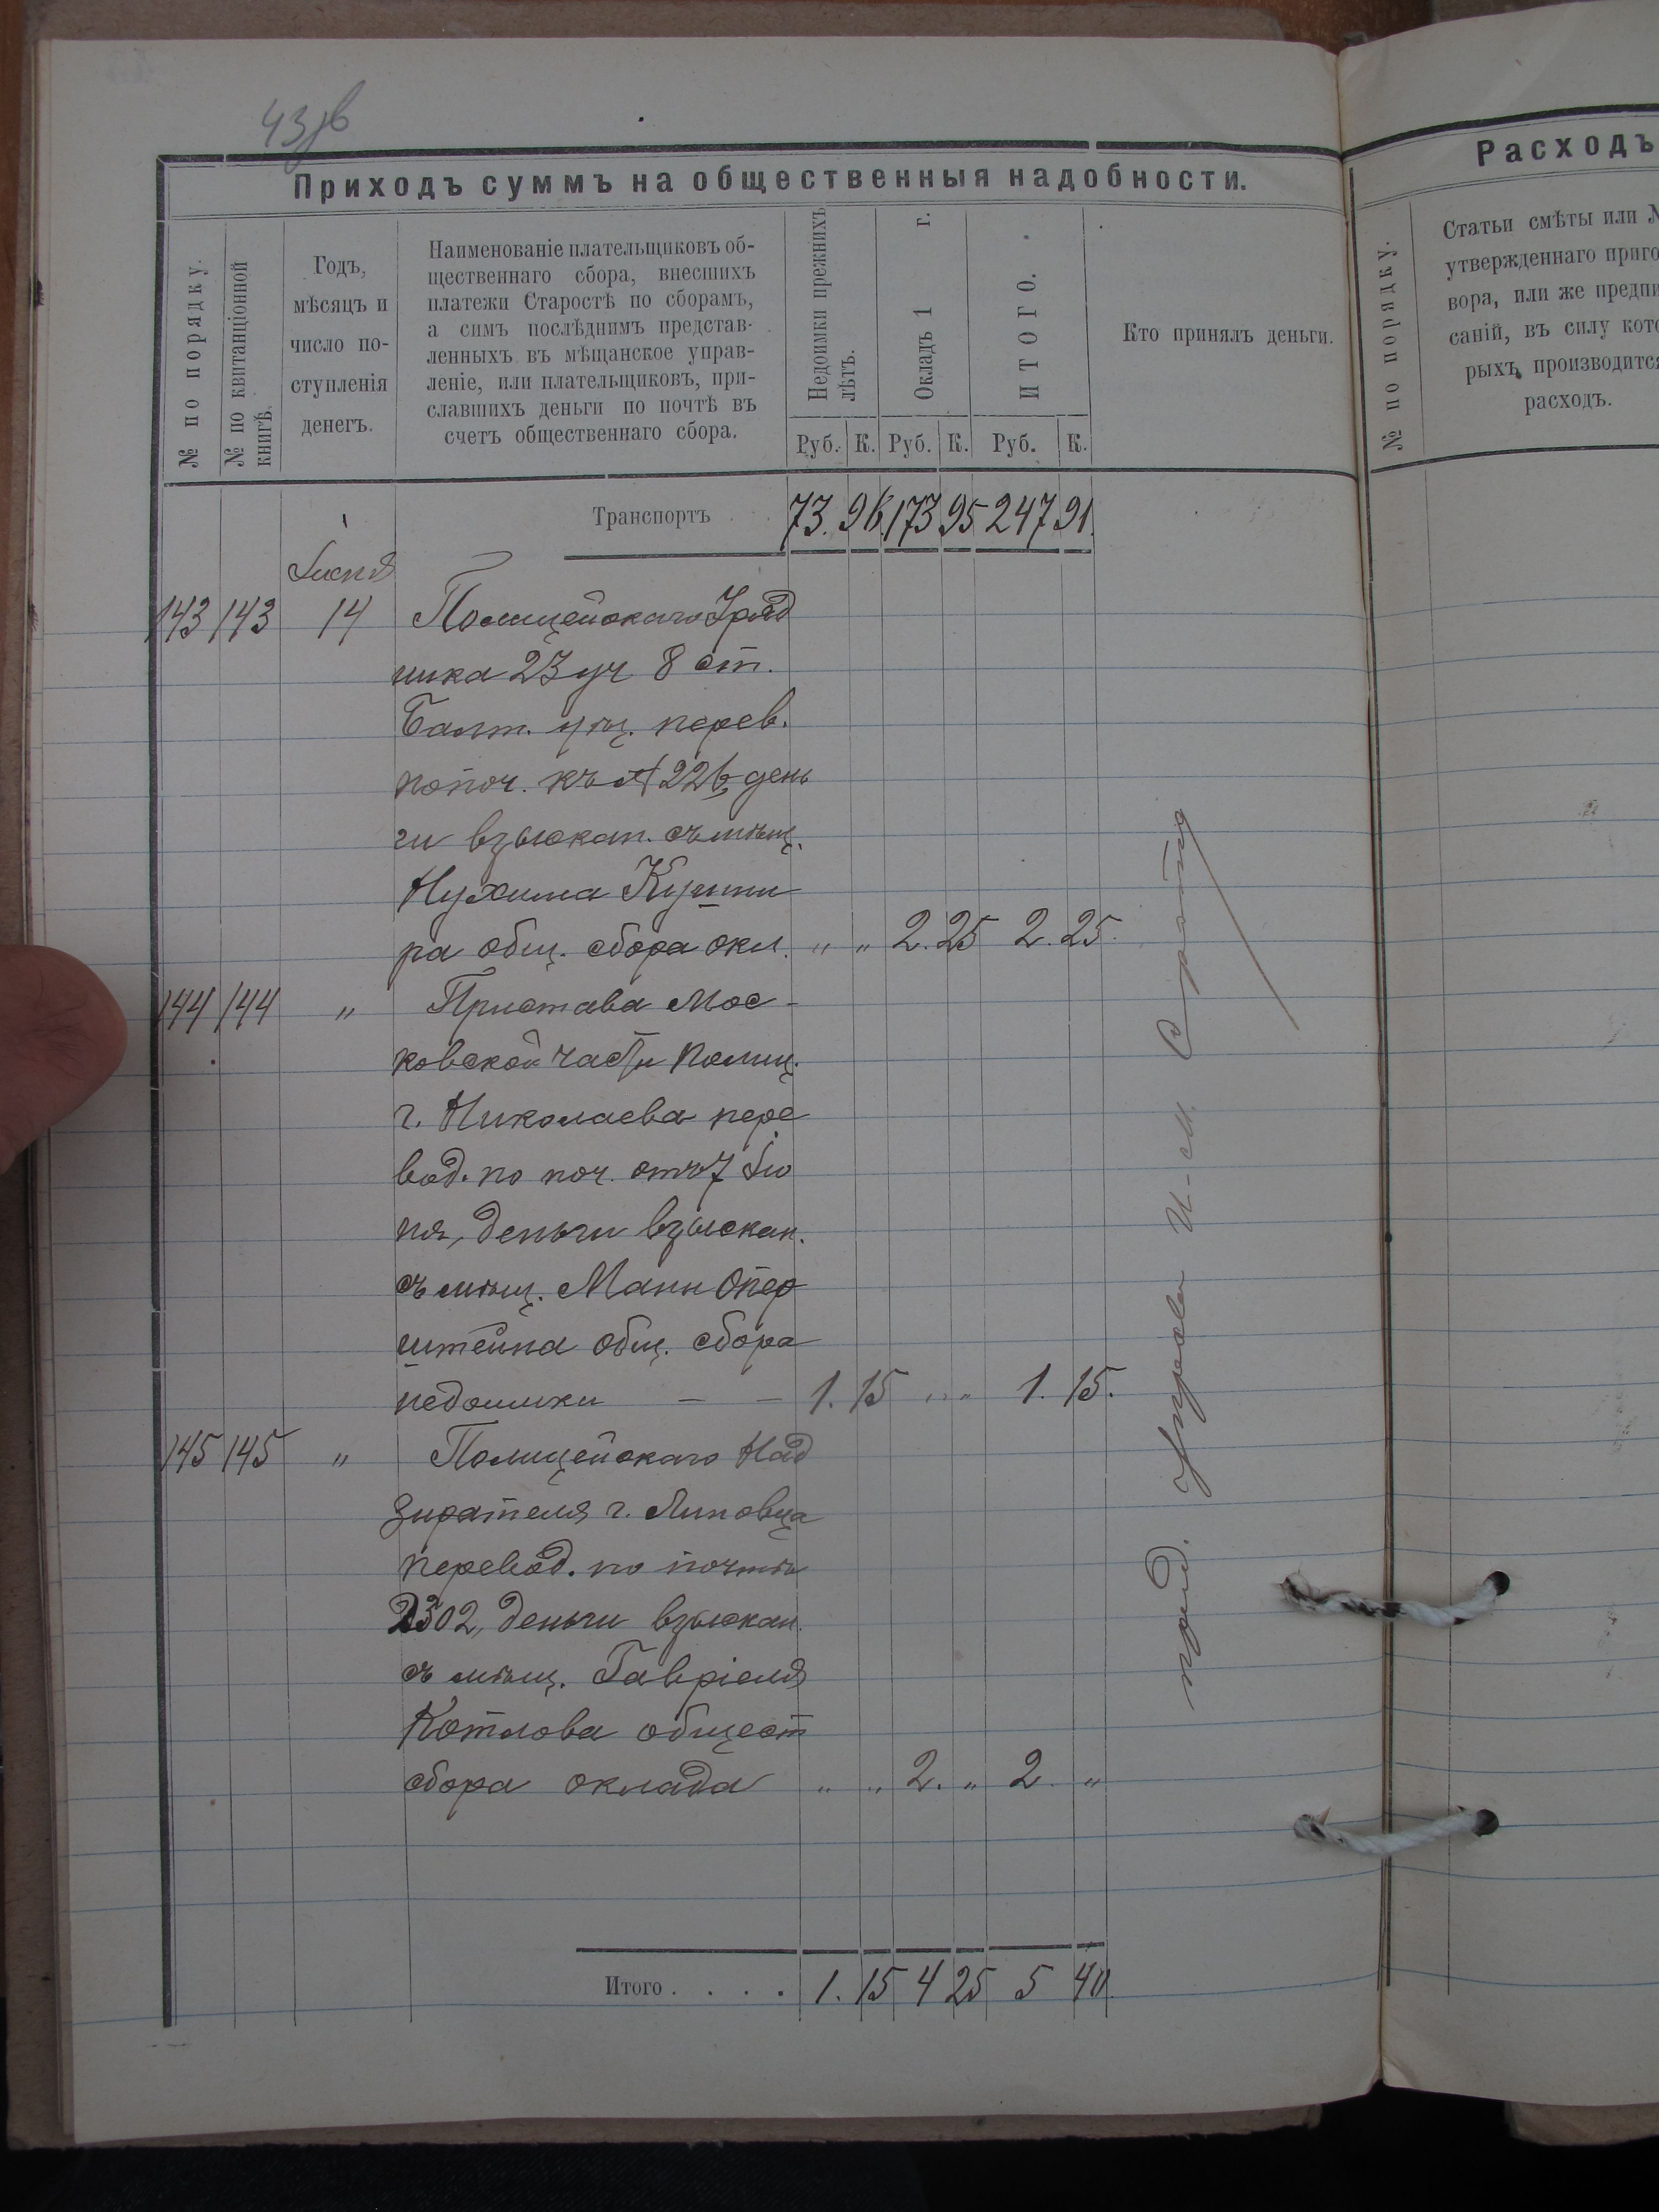 43об
Приходъ суммъ на общественныя надобности.
№ по порядку.
№ по квитанціонной книгѣ.
Годъ,
мѣсяцъ и
число по-
ступленія
денегъ.
Наименованіе плательщиковъ об-
щественнаго сбора, внесшихъ
платежи Старостѣ по сборамъ,
а симъ послѣднимъ представ-
ленныхъ въ мѣщанское управ-
леніе, или плательщиковъ, при-
славшихъ деньги по почтѣ въ
счетъ общественнаго сбора.
Недоимки прежнихъ лѣтъ.
Окладъ 1 г.
ИТОГО.
Кто принялъ деньги.
Руб. К. Руб. К. Руб. К.
Транспортъ 73. 96 173 95 247 91.
Іюня
143 143 14 Полицейскаго Уряд
ника 23 уч 8 ст.
Балт. уѣз. перев.
по поч. къ № 226, день
ги взыскан. съ мѣщ.
Нухима Кушни
ра общ. сбора окл. „ „ 2. 25 2. 25.
144 144 „ Пристава Мос-
ковской части Полиц.
г. Николаева пере
вод. по поч. отъ 7 Iю
ня, деньги взыскан.
съ мѣщ. Мани Опер
штейна общ. сбора
недоимки — — 1. 15 „ „ 1. 15.
145 145 „ Полицейскаго Над
зирателя г. Липовца
перевод. по почтѣ
2302, деньги взыскан.
съ мѣщ. Гавріеля
Котлова общест
сбора оклада „ „ 2. „ 2. „
Итого . . . . 1. 15 4 25 5 40.
Расходъ
№ по порядку.
Статьи смѣты или №
утвержденнаго приго
вора, или же предпи
саній, въ силу кото
рыхъ производится
расходъ.